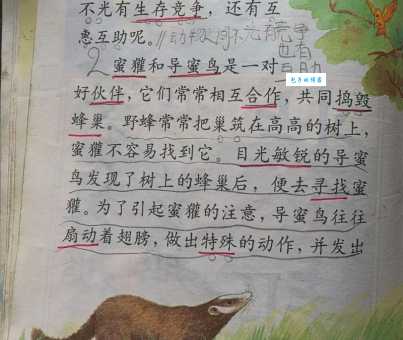 不光有生存竞争，还有互
惠互助呢。//动物之间不光有竞争
也有
互助
2 蜜獾和导蜜鸟是一对
好伙伴，它们常常相互合作，共同捣毁
蜂巢。野蜂常常把巢筑在高高的树上，
蜜獾不容易找到它。目光敏锐的导蜜
鸟发现了树上的蜂巢后，便去寻找蜜
獾。为了引起蜜獾的注意，导蜜鸟往往
扇动着翅膀，做出特殊的动作，并发出